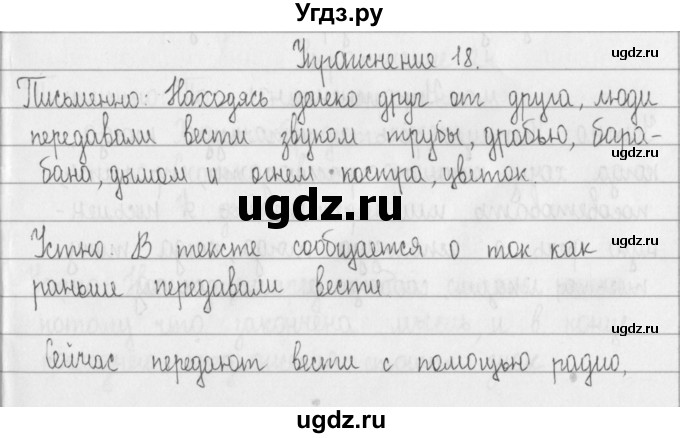 Угдз.ру
ugdz.ru
Упражнение 18.
ugdz.ru
Письменно: Находясь далеко друг от друга, люди
передавали вести звуком трубы, дробью, бара-
ugdz.ru
бана, дымом и огнем костра, цветок
ugdz.ru
Устно: В тексте сообщается о ток как
ugdz.ru
раньше передавали вести
ugdz.ru
ugdz.ru
Сейчас передают вести с помощью радио,
ugdz.ru
ugdz.ru